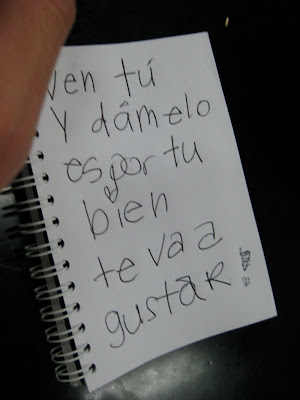 ven tú
y dámelo
es por tu
bien
te va a
gustar